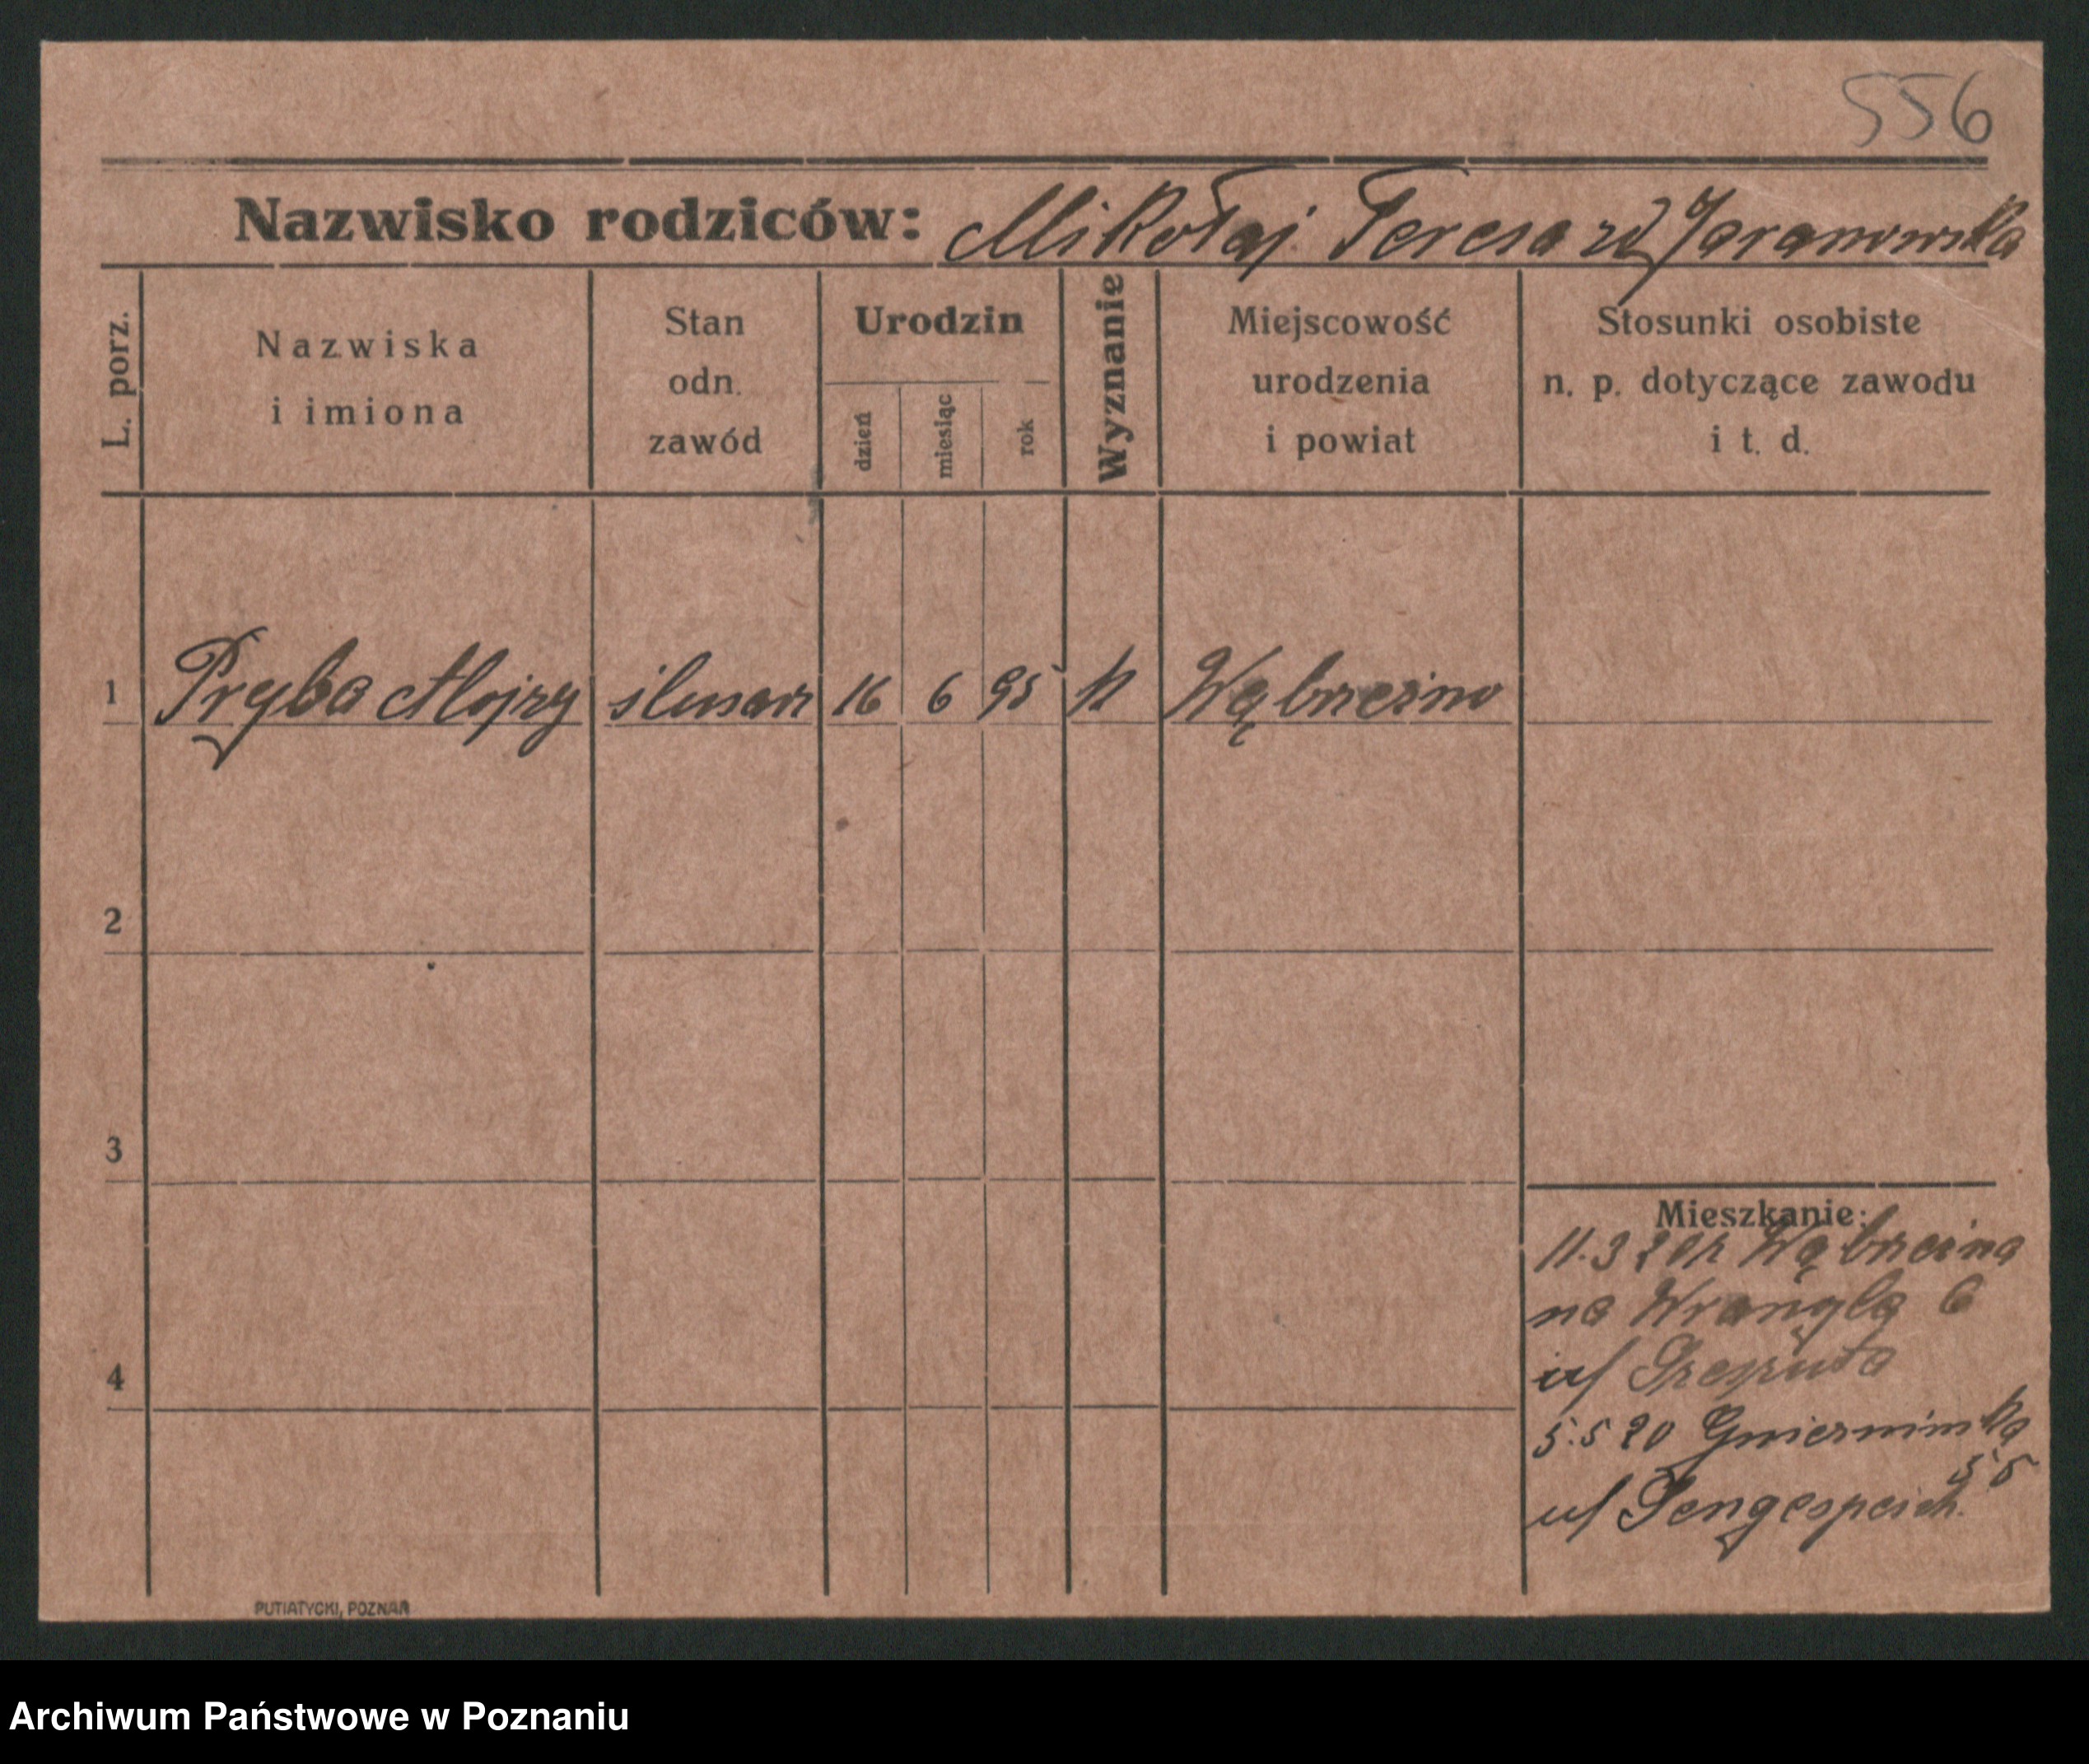 556
Nazwisko rodziców: Mikołaj Teresa zd Jaranowska
L. porz.
Nazwiska i imiona
Stan odn. zawód
Urodzin
dzień
miesiąc
rok
Wyznanie
Miejscowość urodzenia i powiat
Stosunki osobiste n. p. dotyczące zawodu i t. d.
1 Pryba Alojzy ślusarz 16 6 95 k Wąbrzeźno
2
3
4
Mieszkanie:
11.3 20 z Wąbrzeźna
na Wrangla 6
u/
5.5 20 Gnieźnińska
55
u/ Tengespeich.
PUTIATYCKI, POZNAŃ
Archiwum Państwowe w Poznaniu